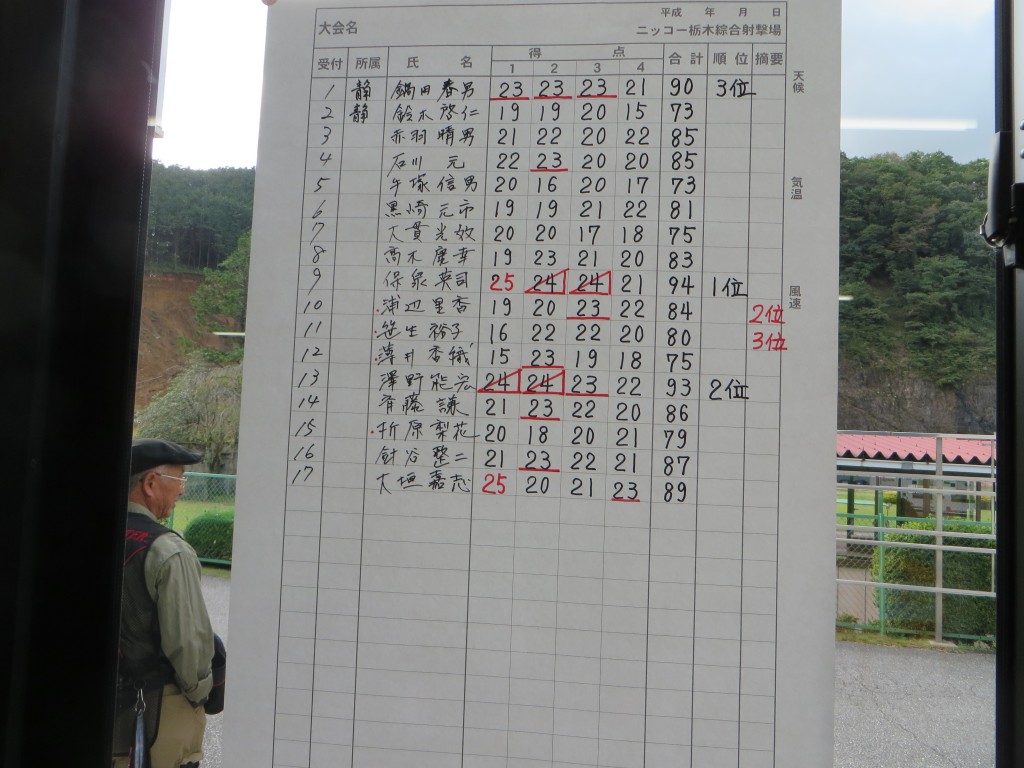 平成 年 月 日
大会名 ニッコー栃木綜合射撃場
受付 所属 氏 名 得 点 合計 順位 摘要
1 2 3 4
天候
1 静 鍋田春男 23 23 23 21 90 3位
2 静 鈴木啓仁 19 19 20 15 73
3 赤羽晴男 21 22 20 22 85
4 石川 元 22 23 20 20 85
気温
5 手塚信男 20 16 20 17 73
6 黒崎元市 19 19 21 22 81
7 大貫光政 20 20 17 18 75
8 高木 幸 19 23 21 20 83
9 保泉英司 25 24 24 21 94 1位
風速
10 渡辺里香 19 20 23 22 84 2位
11 笹生裕子 16 22 22 20 80 3位
12 薄井香織 15 23 19 18 75
13 澤野能宏 24 24 23 22 93 2位
14 斉藤 謙 21 23 22 20 86
15 折原梨花 20 18 20 21 79
16 針谷整二 21 23 22 21 87
17 大垣嘉志 25 20 21 23 89